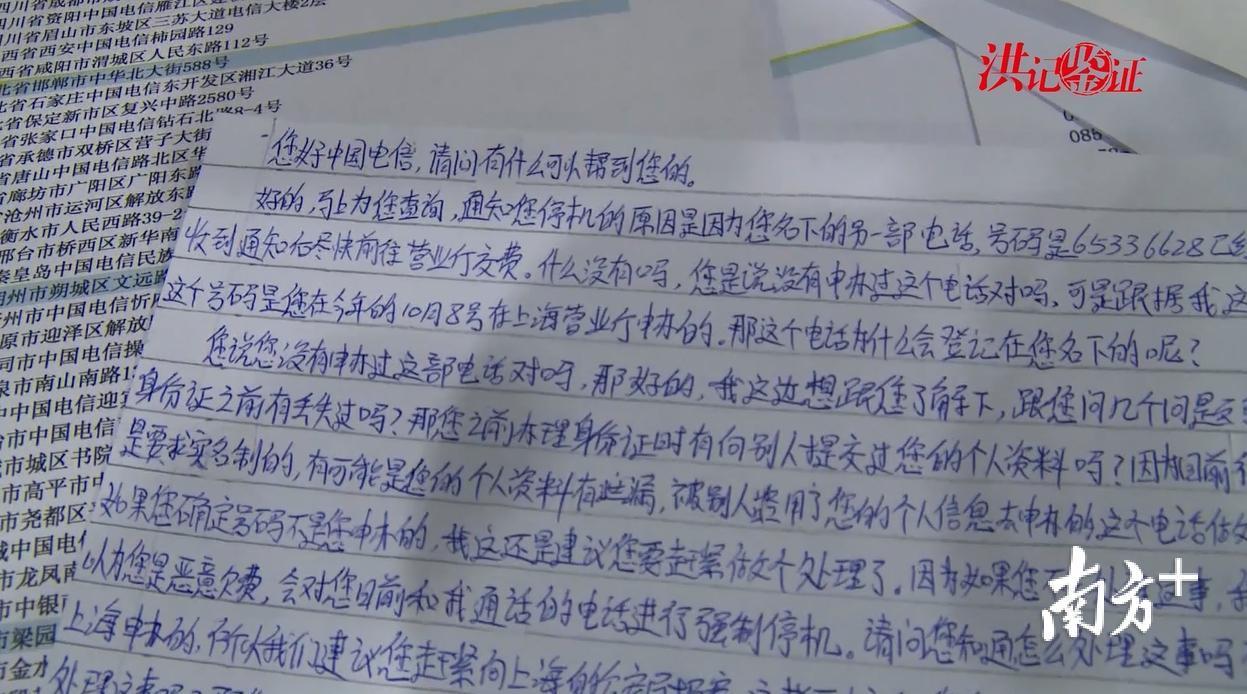 四川省资阳中国电信雁江区
四川省眉山市东坡区三苏大道电信大楼2层
西省西安中国电信柿园路129
西省咸阳市渭城区人民东路112号
北省邯郸市中华北大街588号
北省石家庄中国电信东开发区湘江大道36号
省保定新市区复兴中路2580号
省张家口中国电信钻石北 8-4号
省承德市双桥区营子大街
省唐山中国电信路北区华
省廊坊市广阳区广阳东路
沧州市运河区解放东路
衡水市人民西路39-2
邢台市桥西区新华南
秦皇岛中国电信民族
朔州市朔城区文远路
州市中国电信忻
原市迎泽区解放
同市中国电信操
泉市南山南路1
中国电信迎宾
市中国电信
城市城区书院
市高平市
市尧都区
城中国电信
市龙凤南
市中银
市梁园
市金水
洪记鉴证
085
您好中国电信,请问有什么可以帮到您的。
好的,马上为您查询,通知您停机的原因是因为您名下的另一部电话,号码是65336628已经
收到通知后尽快前往营业厅交费。什么没有吗,您是说没有申办过这个电话对吗,可是跟据我这
这个号码是您在今年的10月8号在上海营业厅申办的。那这个电话为什么会登记在您名下的呢?
您说您没有申办过这部电话对吗,那好的,我这边想跟您了解下,跟您问几个问是
身份证之前有丢失过吗?那您之前办理身份证时有向别人提交过您的个人资料吗?因为目前
是要求实名制的,有可能是您的个人资料有泄漏,被别人盗用了您的个人信息去申办的这个电话
如果您确定号码不是您申办的,我这还是建议您要赶紧做个处理了。因为如果您不
以为您是恶意欠费,会对您目前和我通话的电话进行强制停机。请问您知道怎么处理这事吗
上海申办的,所以我们建议您赶紧向上海
南方+